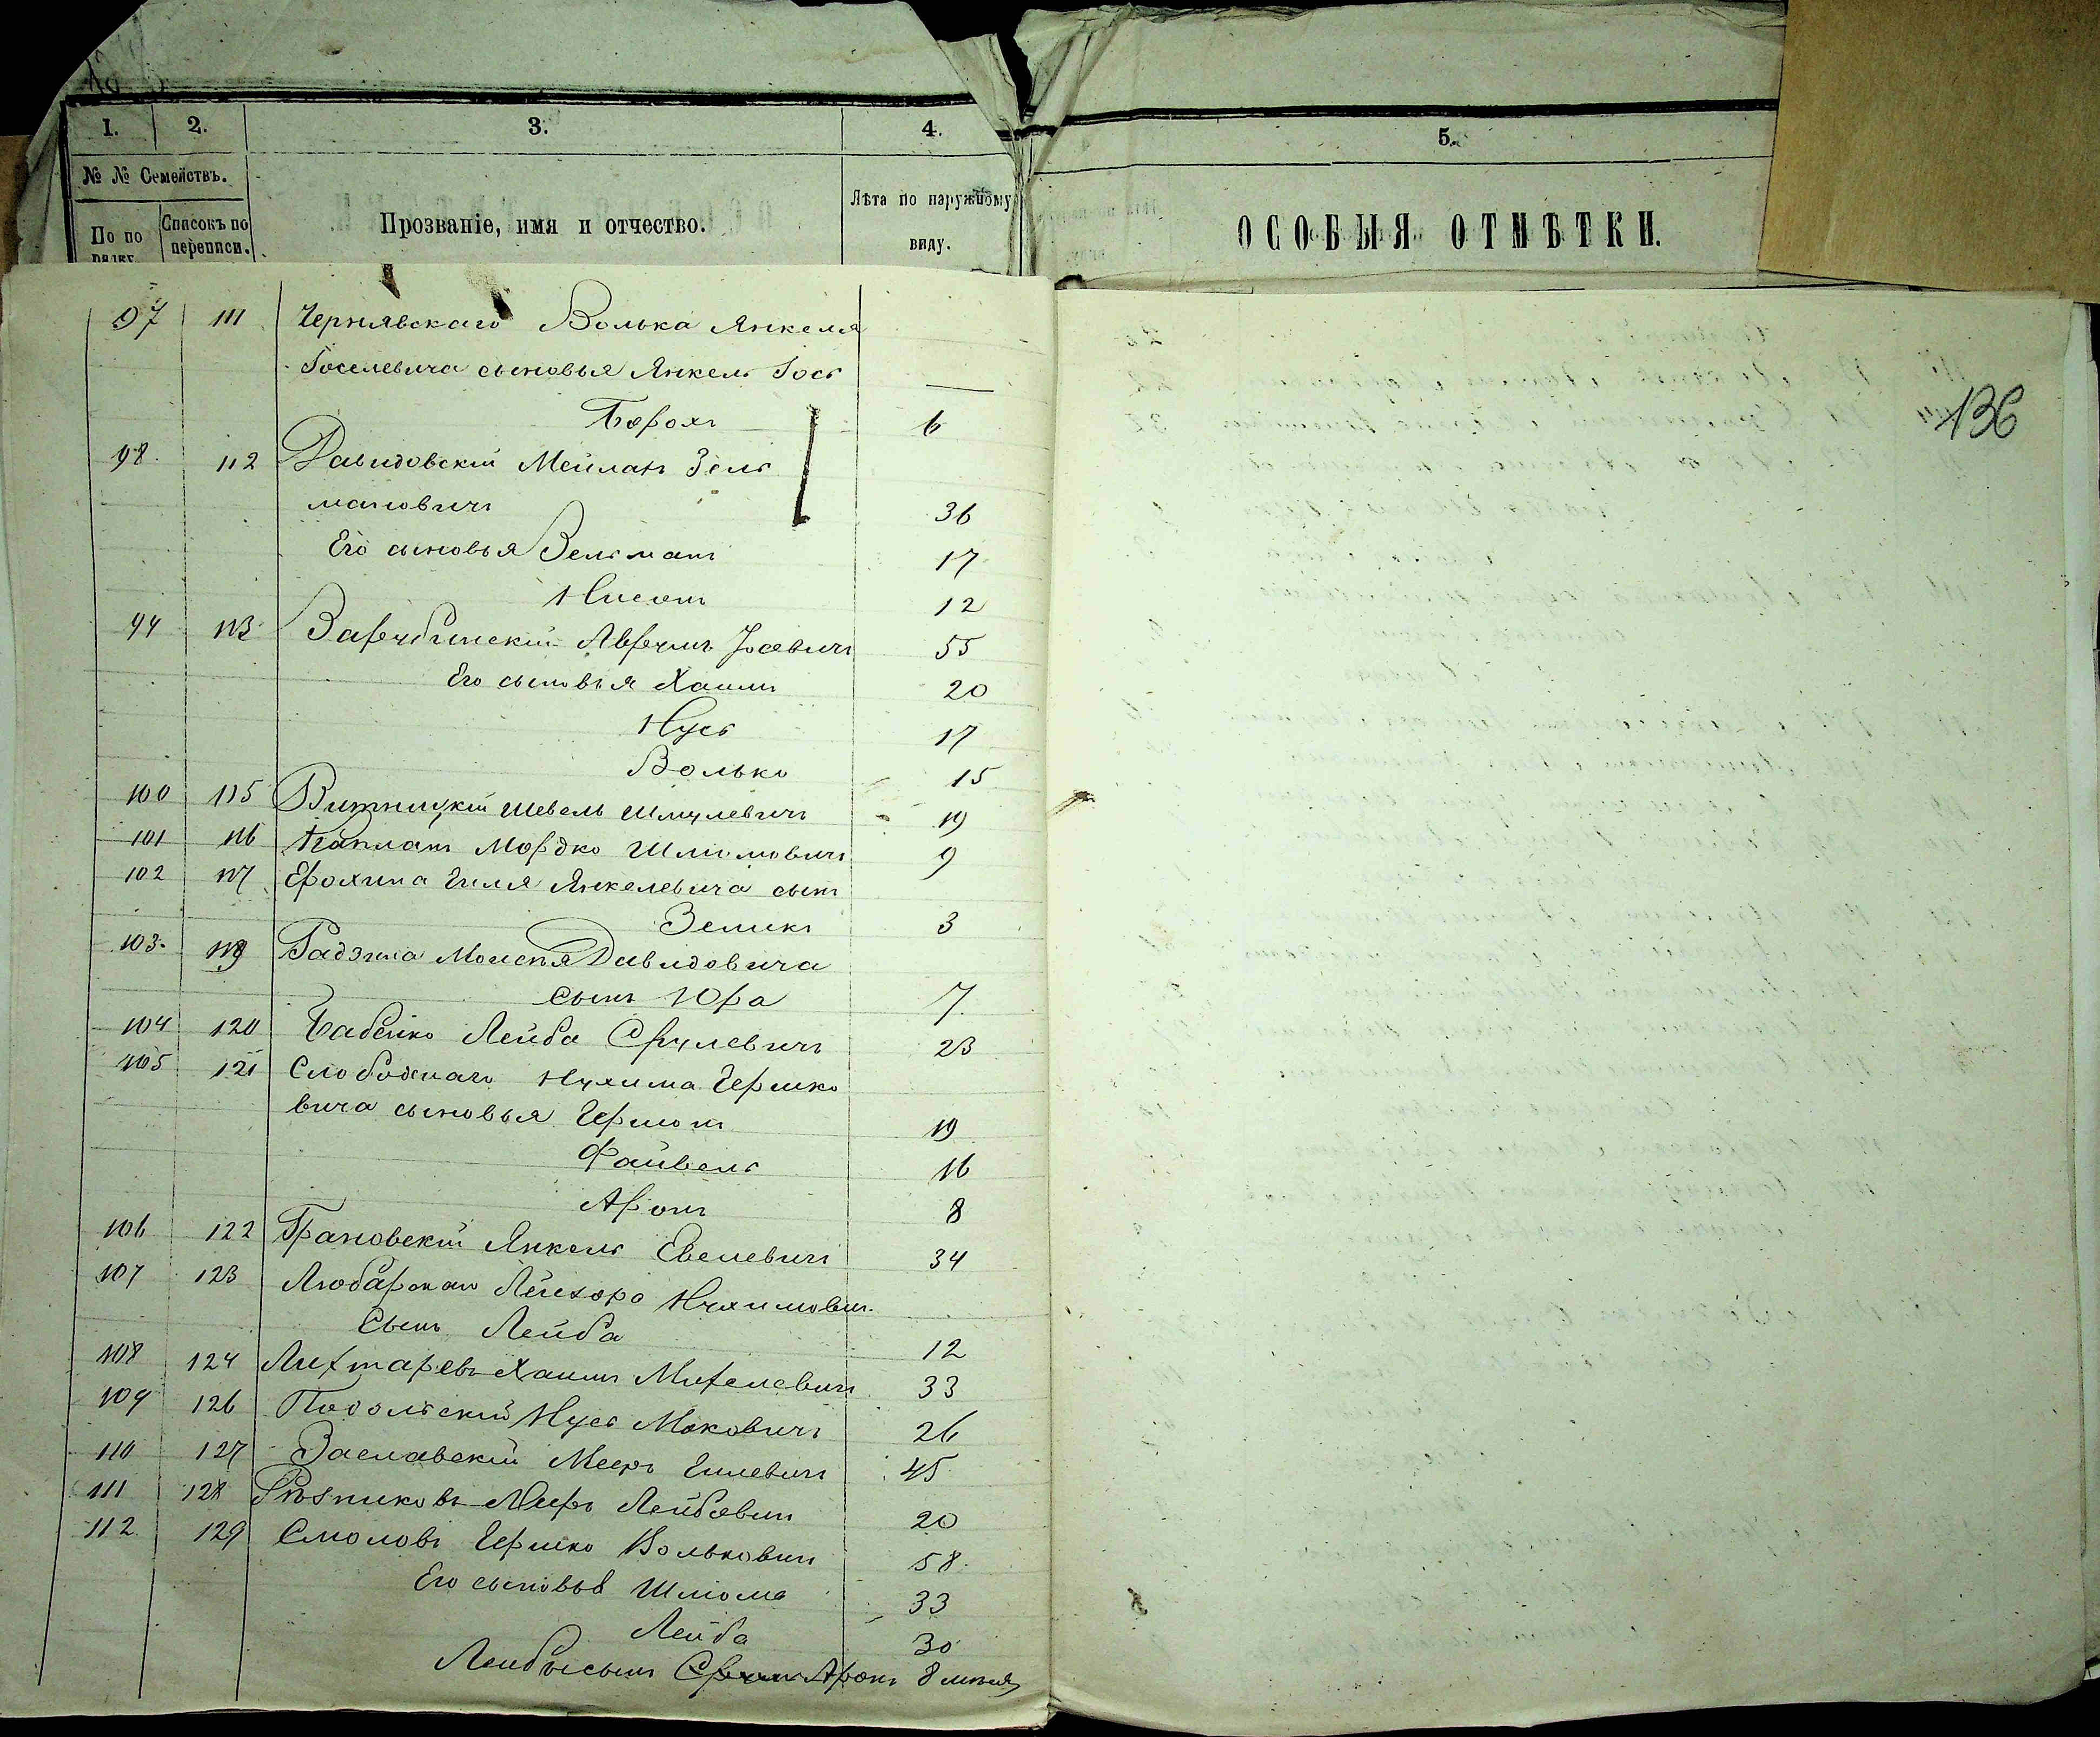 1. 2. 3. 4. 5.
№ № Семействъ.
По по Списокъ по переписи. Прозваніе, имя и отчество. Лѣта по наружному виду. ОСОБЫЯ ОТМѢТКИ.
136
97 111 Чернявскаго Волька Янкеля
Іоселевича сыновья Янкель Іось —
Борохъ 6
98. 112 Давидовскій Мейлахъ Зель
мановичъ 36
Его сыновья Зельманъ 17
Нисонъ 12
99 113 Авругмъ Іосевичъ 55
Его сыновья Хаимъ 20
Нусь 17
Волько 15
100 115 Витницкій Шевель Шмулевичъ 19
101 116 Капланъ Мордко Шлиомовичъ 9
102 117 Ерохима Гиля Янкелевича сынъ
Зеликъ 3
103. 119 Радзина Моисея Давидовича
сынъ Юра 7.
104 120 Бабейко Лейба Срулевичъ 23
105 121 Слободскаго Нухима Гершко
вича сыновья Гершонъ 19
Файвель 16
Аронъ 8
106 122 Грановскій Янкель Евелевичъ 34
107 123 Любарскаго Нухимович.
Сынъ Лейба 12
108 124 Лихтаревъ Хаимъ Михелевичъ 33
109 126 Подольскій Нусь Мошковичъ 26
110 127 Заславскій Мееръ Гилевичъ 45
111 128 Рѣзниковъ Меиръ Лейбовичъ 20
112. 129 Смоловъ Гершко Вольковичъ 58.
Его сыновья Шліома 33
Лейба 30
Лейбы сынъ Сруль Аронъ 8 мѣсяц